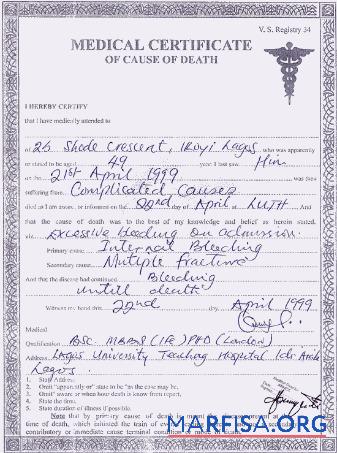 V. S. Registry 34
MEDICAL CERTIFICATE
OF CAUSE OF DEATH
I HEREBY CERTIFY
that I have medically attended to
of 26 Shode Crescent, Ikoyi Lagos who was apparently
or stated to be aged 49 years I last saw Him
on the 21st April 1999 was then
suffering from Complicated Causes
died as I am aware, or informed on the 22nd day of April at LUTH And
that the cause of death was to the best of my knowledge and belief as herein stated.
viz Excessive bleeding on admission.
Primary cause Internal Bleeding
Secondary cause Mutiple fracture
And that the disease had continued Bleeding
untill death
Witness my hand this 22nd day April 1999
Medical
Qualification BSC MBBS (IFE) PHD (London)
Address Lagos University Teaching Hospital Idi Araba
Lagos.
1. Staff Address.
2. Omit "apparently or state to be "as the case may be.
3. Omit" aware or when hour death is know from report.
4. State the time.
5. State duration of illness if possible.
Note that by primary cause of death is meant the at
time of death, which initiated the train of events
contributory or immediate cause terminal condition
MARFISA.ORG